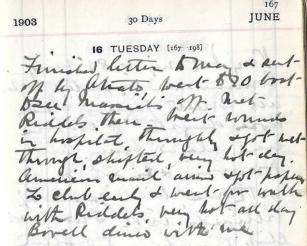 167
1903 30 Days JUNE
16 TUESDAY [167-198]
Finished letter to May & sent
off by went to P.O boat
to see off. Met
Riddels there. went
in hospital, & got wet
through, shifted, very hot day.
American mail & got papers
To club early & went for walk
with Riddels, very hot all day
Bovell dined with me